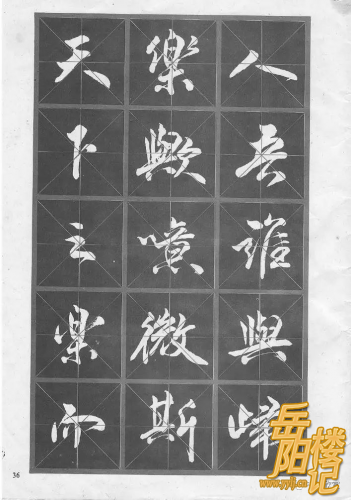 天下之樂而
樂歟噫微斯
人吾誰與歸
36
岳阳楼记